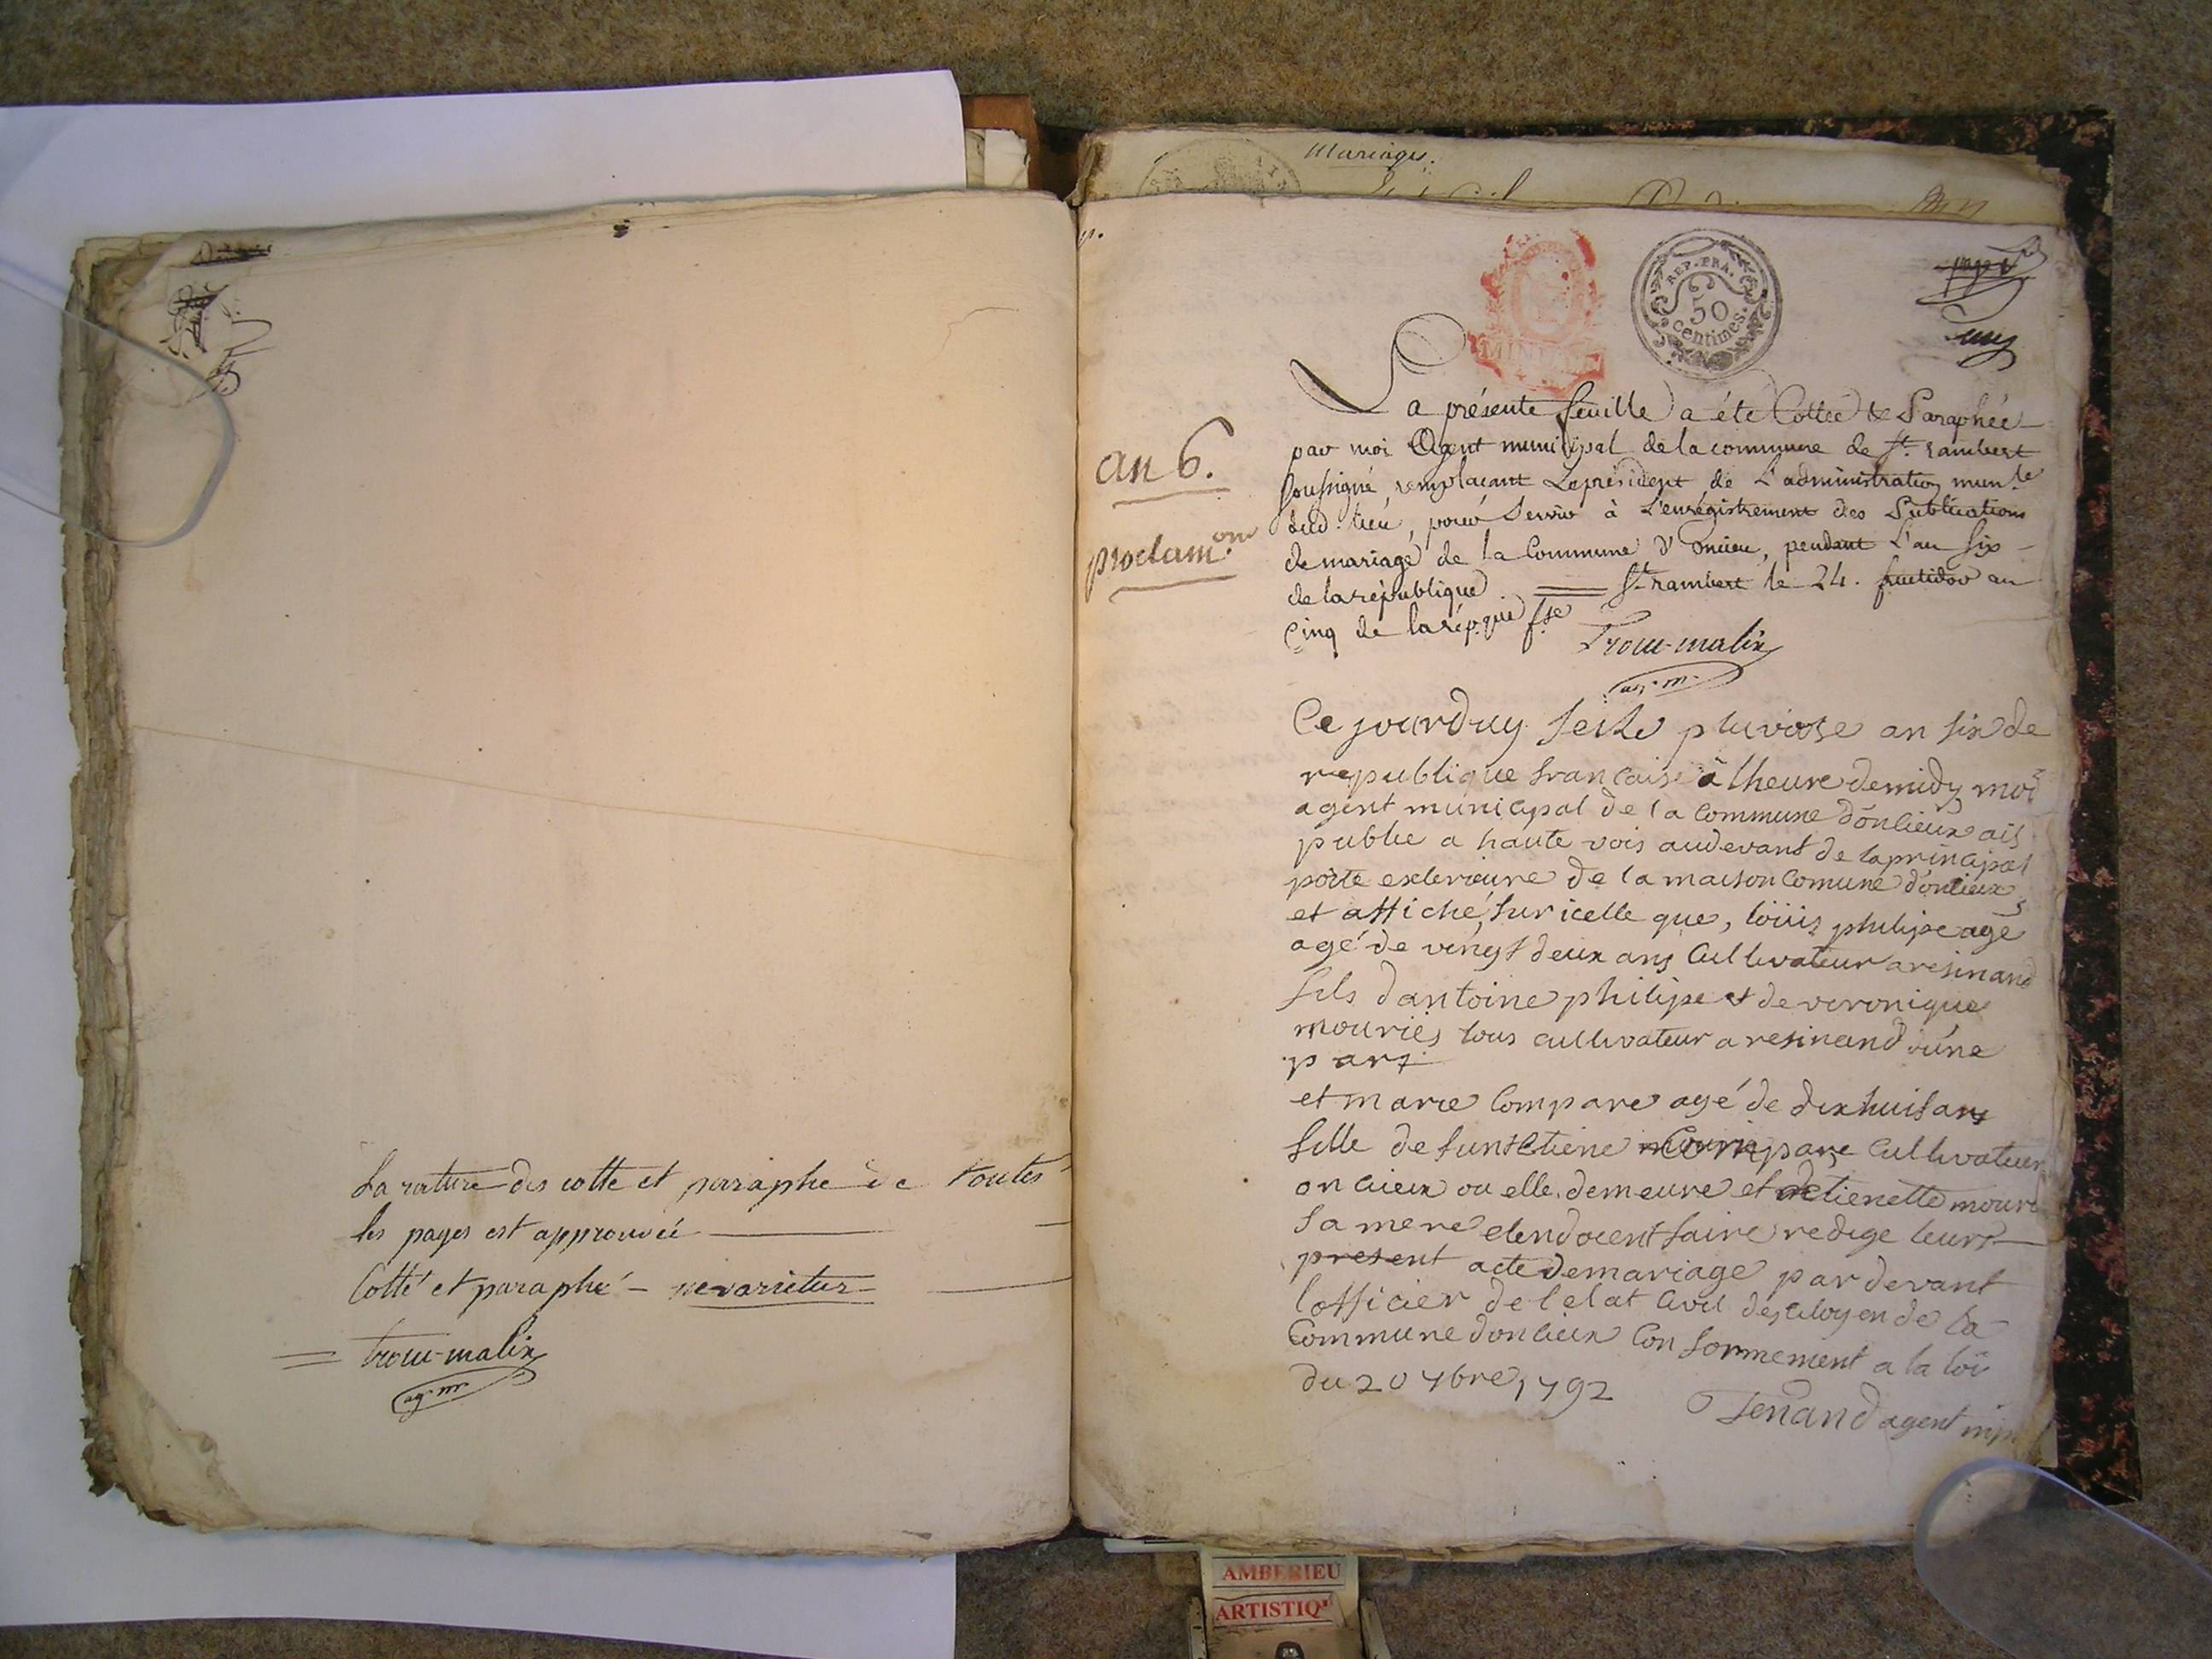 La rature des cotte et paraphe de toutes
les pages est approuvée
Cotté et paraphé - nevarietur
= trocu-malix
ag. m.
Mariages.
an 6.
proclam.on
MINUTE
REP. FRA.
50
centimes.
un
La présente feuille a été Cottée & Paraphée
par moi Agent municipal de la commune de St. rambert
soussigné, remplaçant Le président de L'administration mun.le
dud. lieu, pour Servir à L'enrégistrement des Publications
de mariage de la Commune d'Oncieu, pendant L'an six
de la république. = St. rambert le 24. fructidor an
Cinq de la répque fse
Trocu-malix
ag. m.
Ce jourduy seize pluviose an six de
republique francaise à lheure de midy moi
agent municipal de la commune dónlieux ais
publie a haute vois audevant de la principal
porte exterieure de la maison Comune dónlieux
et affiché, sur icelle que, loüis philipe agé
agé de vingt deux ans Cultivateur a resinand
fils dantoine philipe et de veronique
mouries tous cultivateur a resinand d'úne
part
et marie Compare agé de dix huit ans
fille de funt Etiene Compare Cultivateur
oncieux ou elle demeure et detienette
sa mere etendoient faire redige leurs
present acte de mariage par devant
lofficier de letat Civil des citoyen de la
Commune doncieux Conformement a la loi
du 20 7bre 1792
Tenand agent
AMBERIEU
ARTISTIQ